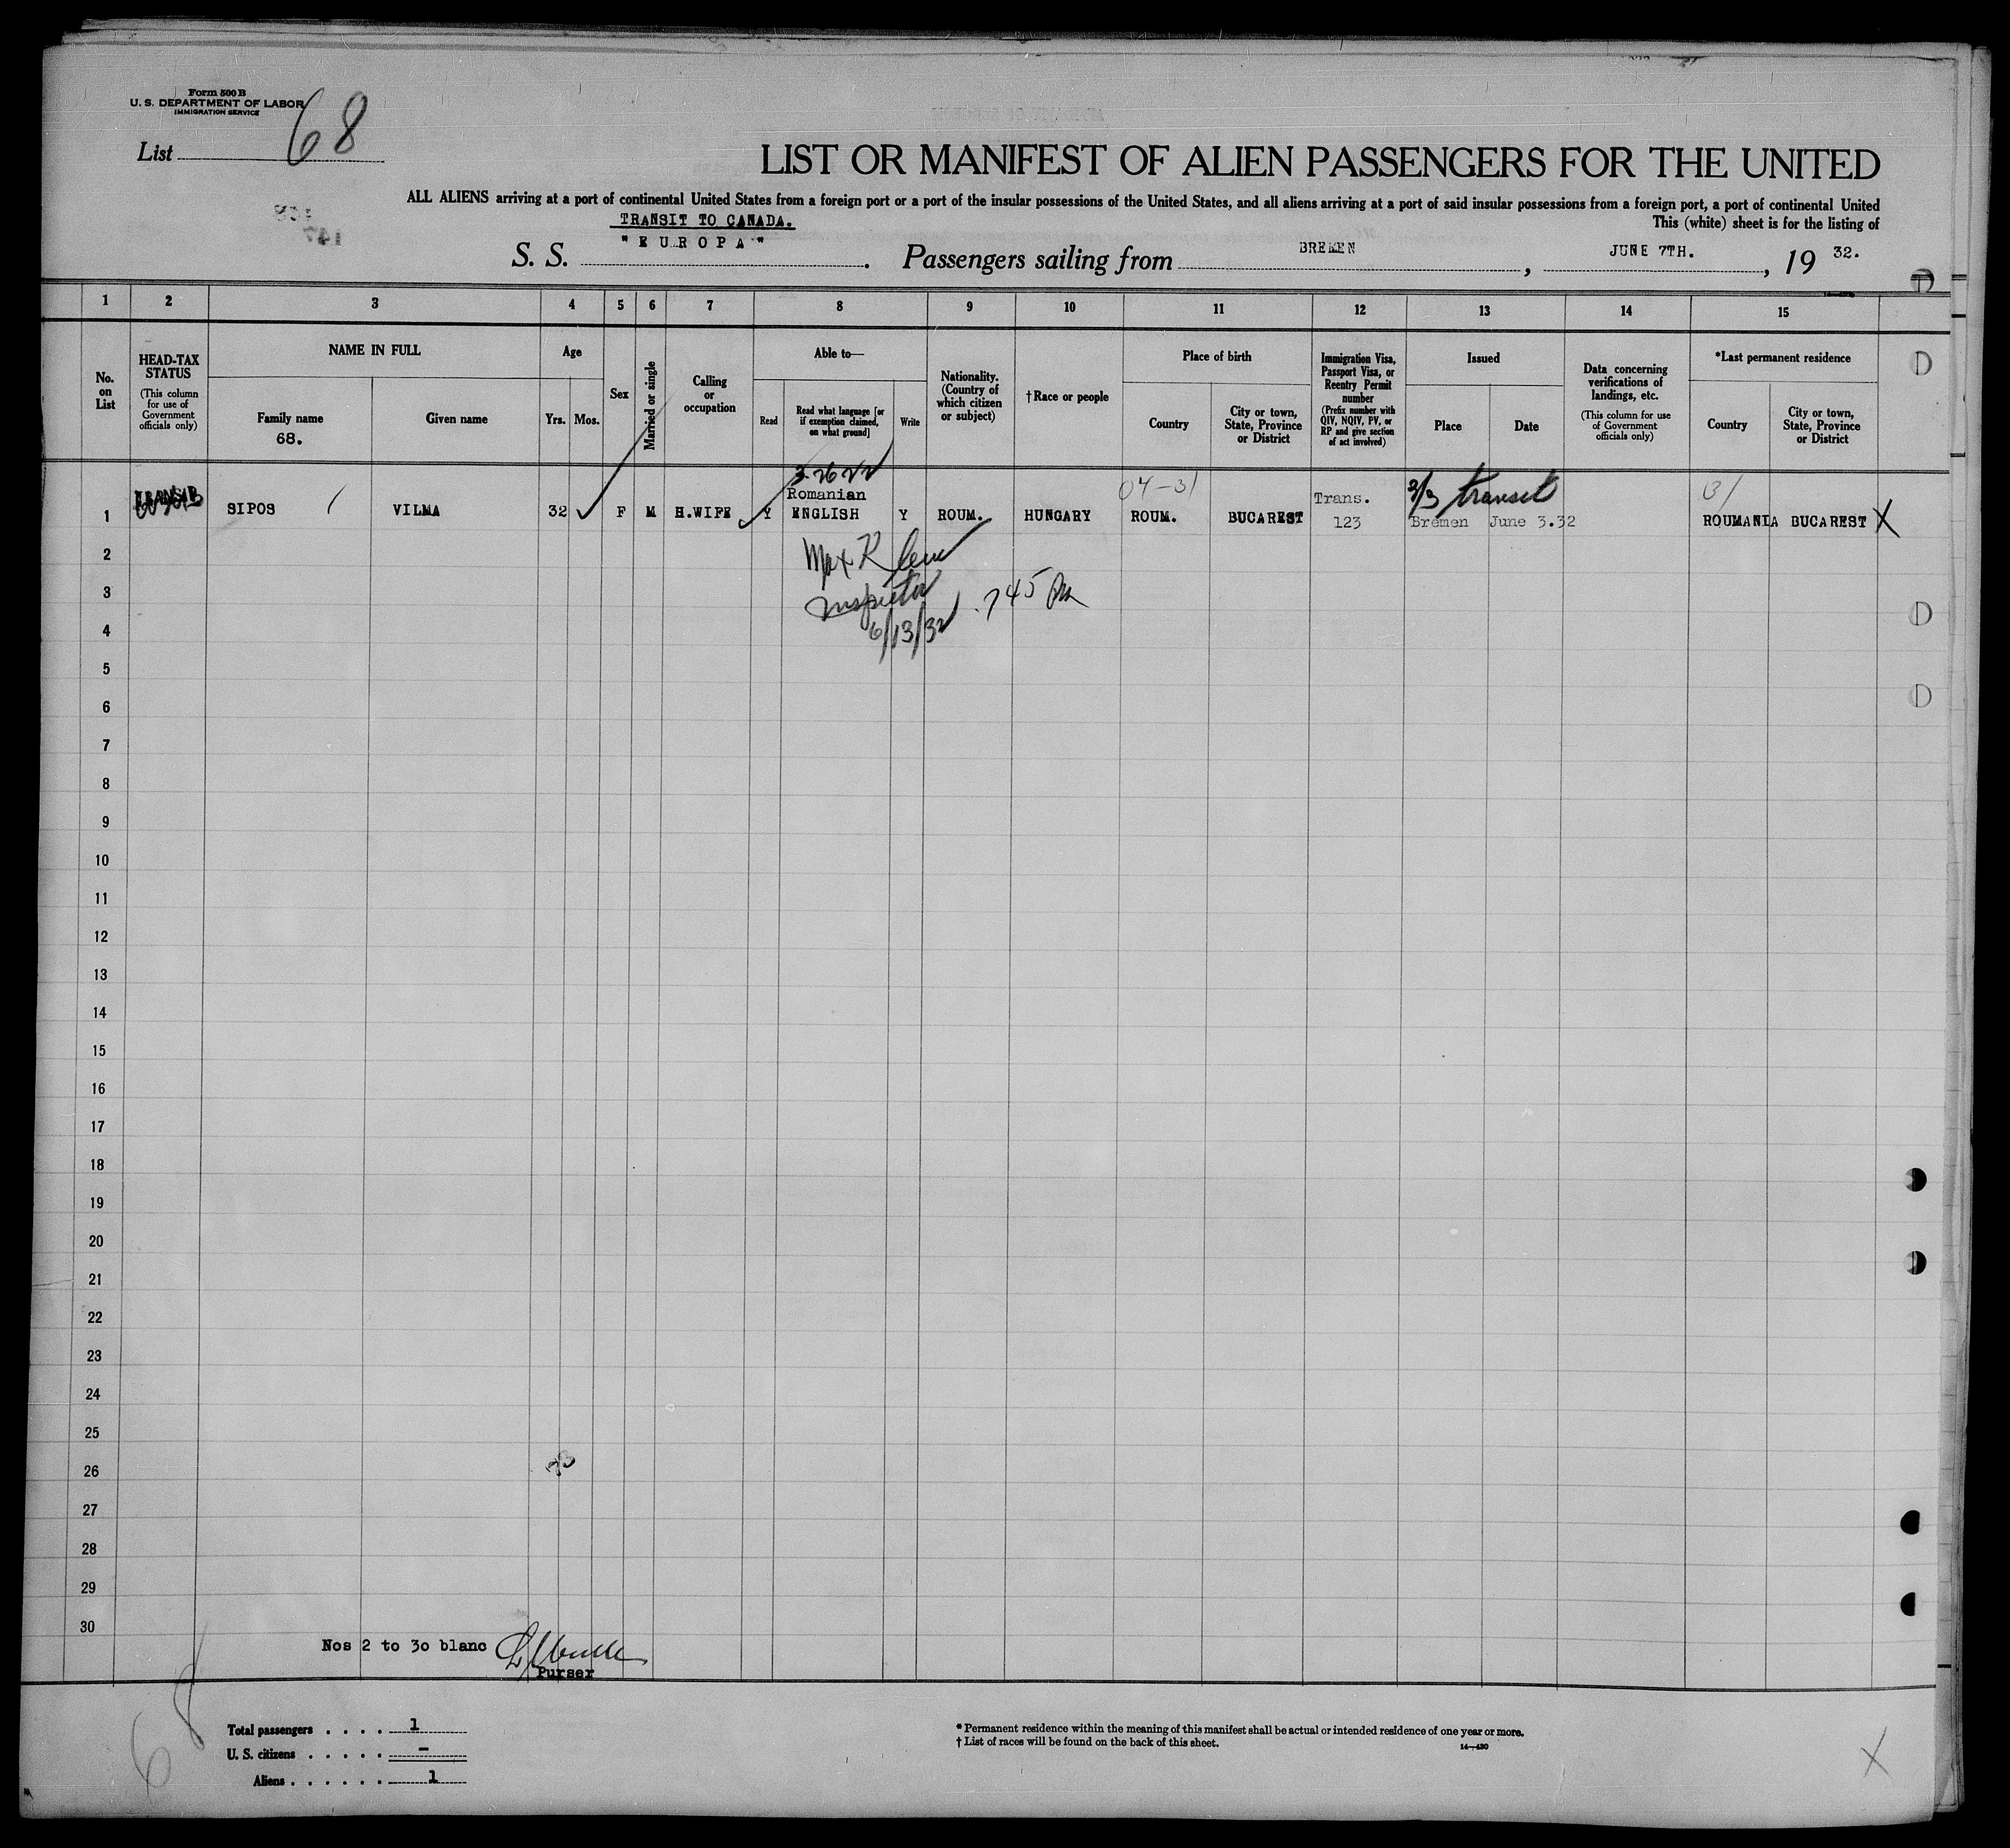 Form 500 B
U. S. DEPARTMENT OF LABOR
IMMIGRATION SERVICE
List 68
LIST OR MANIFEST OF ALIEN PASSENGERS FOR THE UNITED
ALL ALIENS arriving at a port of continental United States from a foreign port or a port of the insular possessions of the United States, and all aliens arriving at a port of said insular possessions from a foreign port, a port of continental United
This (white) sheet is for the listing of
TRANSIT TO CANADA.
S. S. "EUROPA". Passengers sailing from BREMEN, JUNE 7TH., 19 32.
1 2 3 4 5 6 7 8 9 10 11 12 13 14 15
No. on List
HEAD-TAX STATUS
(This column for use of Government officials only)
NAME IN FULL
Family name
68.
Given name
Age
Yrs. Mos.
Sex
Married or single
Calling or occupation
Able to—
Read
Read what language [or if exemption claimed, on what ground]
Write
Nationality. (Country of which citizen or subject)
†Race or people
Place of birth
Country
City or town, State, Province or District
Immigration Visa, Passport Visa, or Reentry Permit number
(Prefix number with QIV, NQIV, PV, or RP and give section of act involved)
Issued
Place
Date
Data concerning verifications of landings, etc.
(This column for use of Government officials only)
*Last permanent residence
Country
City or town, State, Province or District
04-31
3/3 transit
Romanian
Trans.
1 SIPOS VILMA 32 F M H.WIFE Y ENGLISH Y ROUM. HUNGARY ROUM. BUCAREST 123 Bremen June 3.32 ROUMANIA BUCAREST X
2
Max Klein
3
Inspector
7 45 PM
4
6/13/32
5
6
7
8
9
10
11
12
13
14
15
16
17
18
19
20
21
22
23
24
25
26
27
28
29
30
Nos 2 to 30 blanc
Purser
68
Total passengers . . . . 1
U. S. citizens . . . . . -
Aliens . . . . . . 1
* Permanent residence within the meaning of this manifest shall be actual or intended residence of one year or more.
† List of races will be found on the back of this sheet.
14—430
X